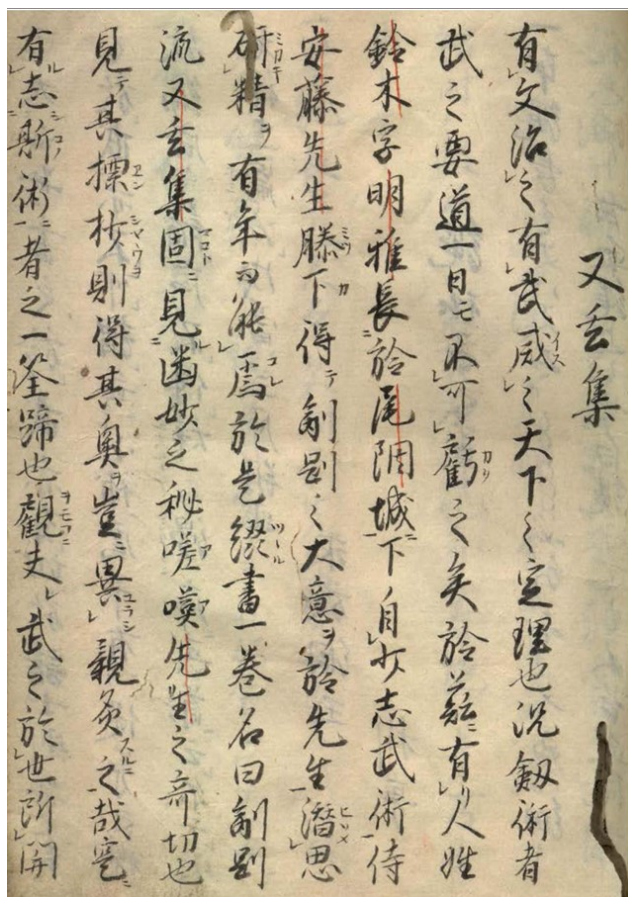 又玄集
有文治之有武威之天下之定理也況劔術者
武之要道一日モ不可虧之矣於茲有人姓
鈴木字明雅長於尾陽城下自少志武術侍
安藤先生膝下得テ剞劂之大意ヲ於先生潛思
研精ヲ有年而能焉於是綴書一巻名曰剞劂
流又玄集固見幽妙之秘嗟嘆先生之奇切也
見テ其標杪則得其奥ヲ豈異親炙之哉寔
有志斯術者之一筌蹄也觀夫武之於世所開